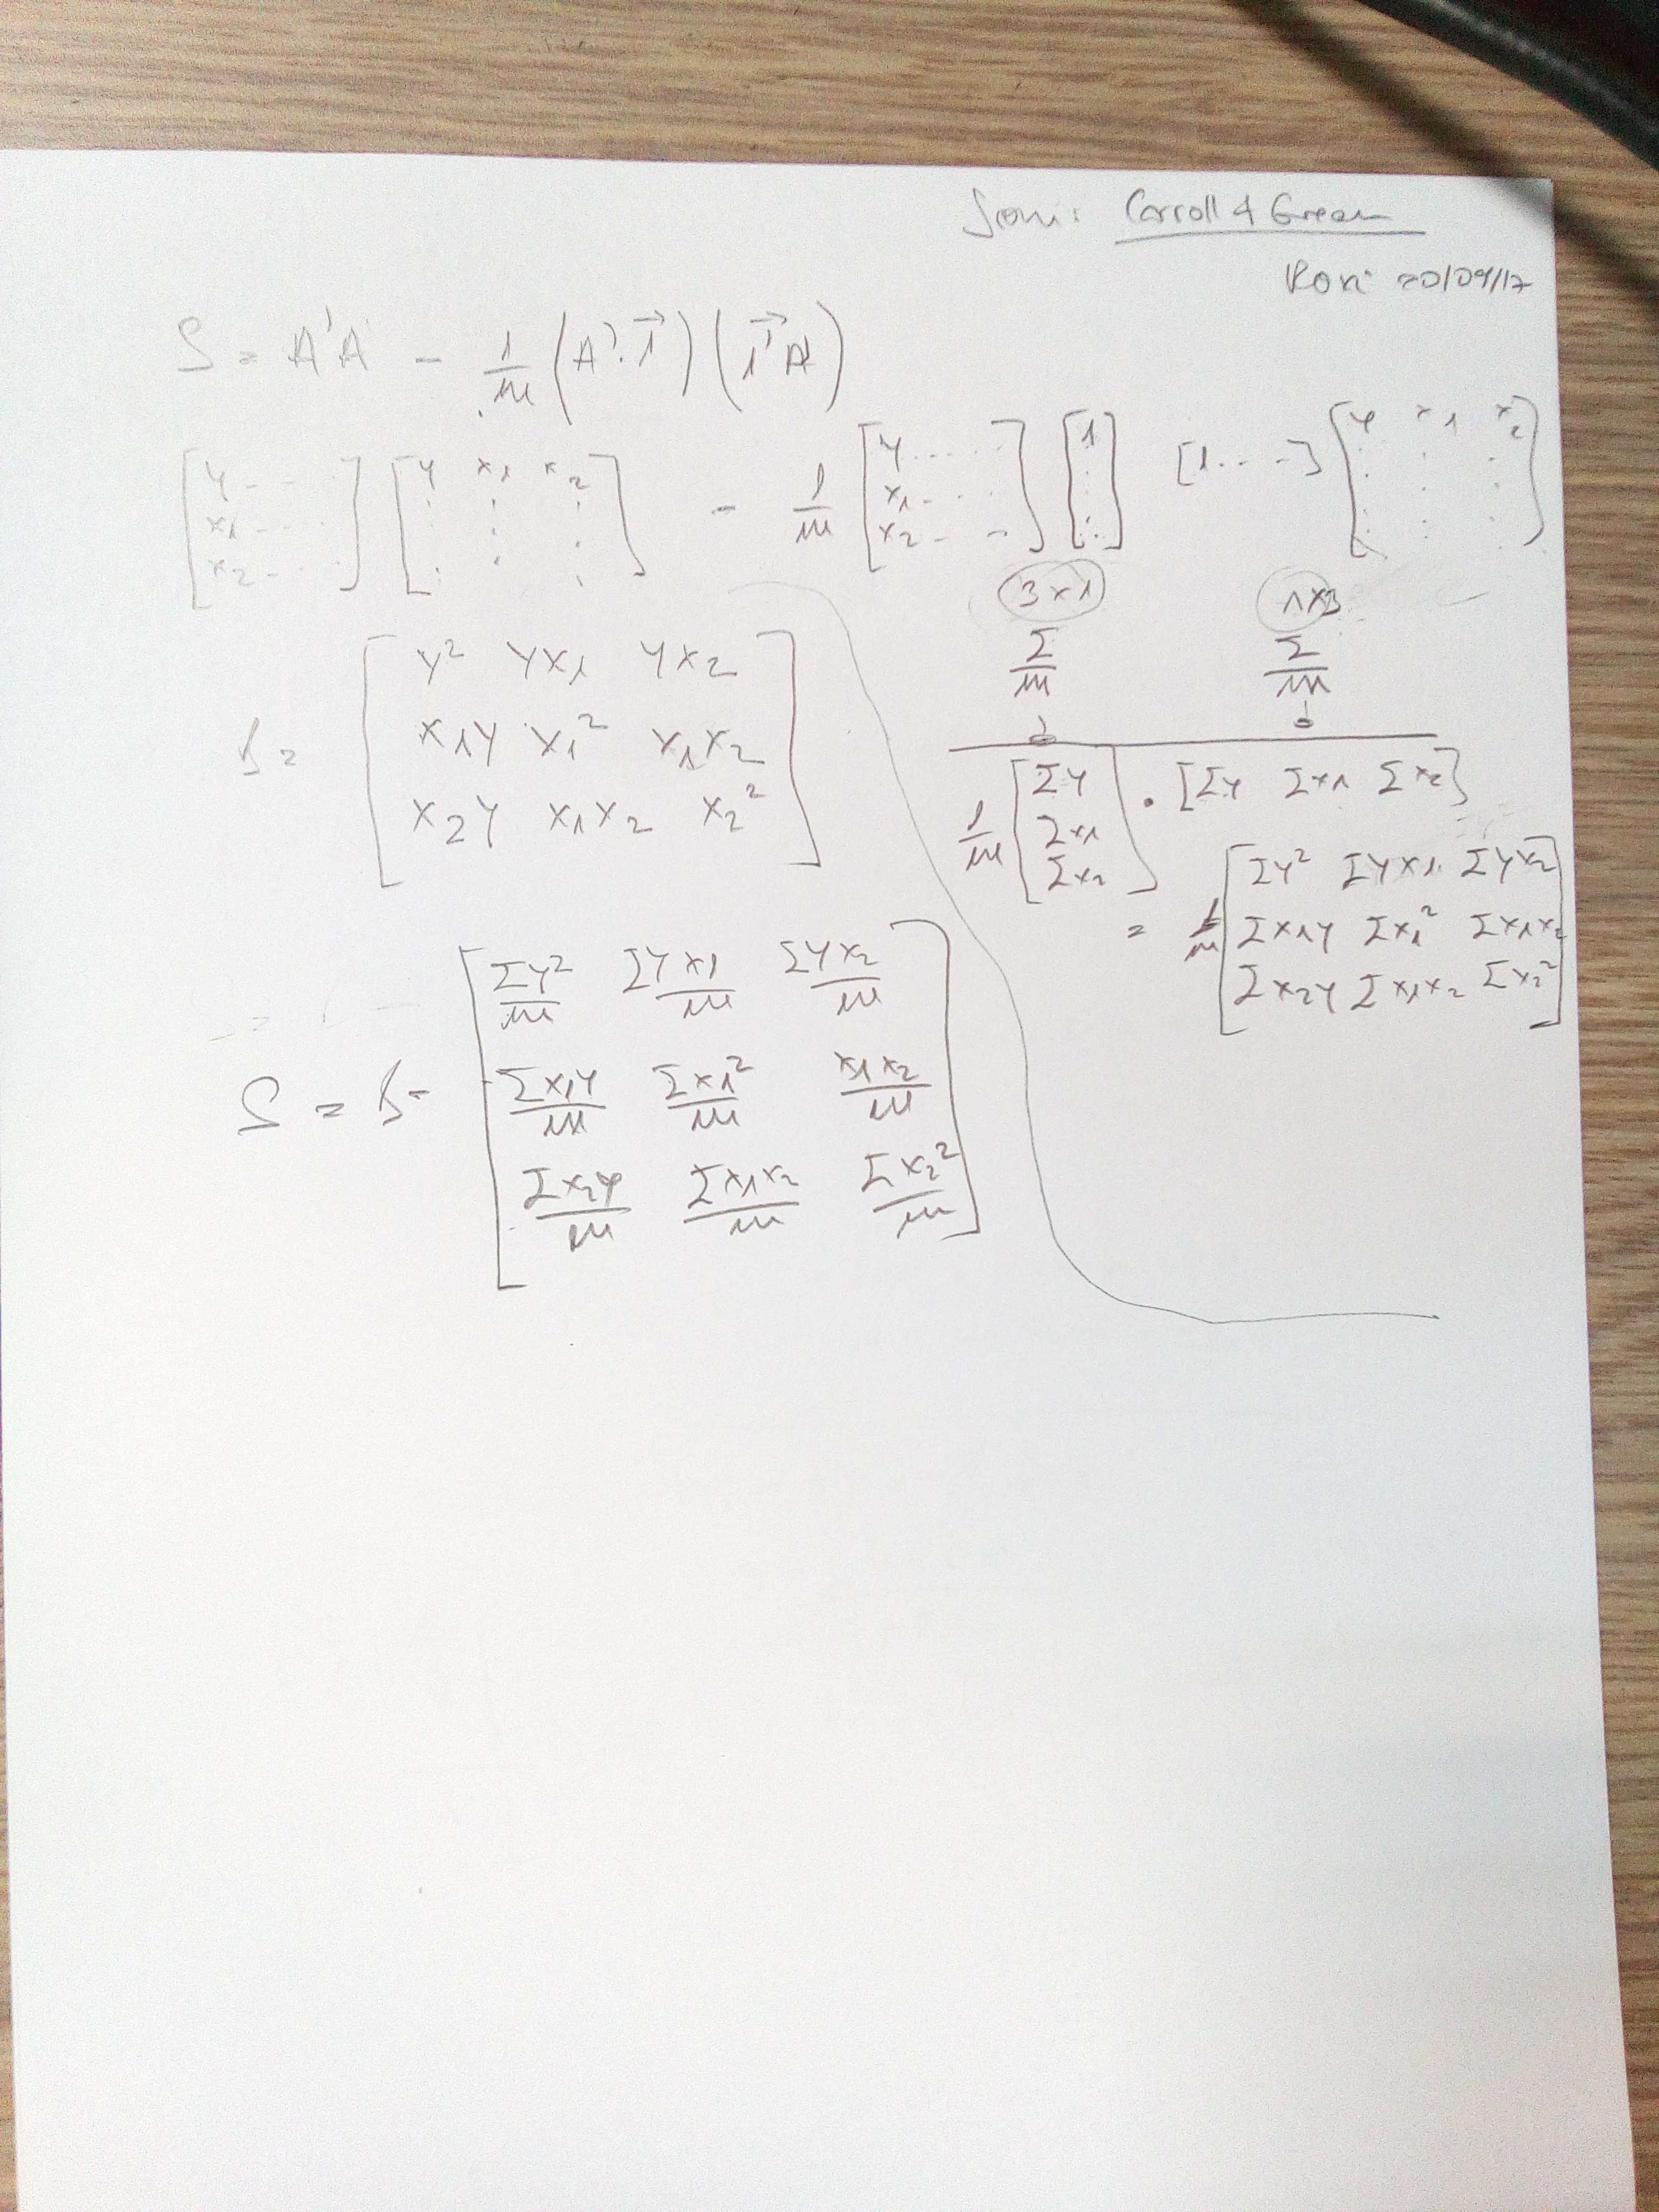 Carroll & Green
Roxi 20/09/17
S = A'A - 1/m (A'·1⃗) (1⃗'A)
[y... x1... x2...] [y x1 x2] - 1/m [y.... x1-... x2- -] [1] [1...-] [y x1 x2]
3x1 1x3
Σ/m Σ/m
y² yx1 yx2
x1y x1² x1x2
x2y x1x2 x2²
1/m [Σy Σx1 Σx2] · [Σy Σx1 Σx2]
= 1/m [Σy² Σyx1 Σyx2
Σx1y Σx1² Σx1x2
Σx2y Σx1x2 Σx2²]
Σy²/m Σyx1/m Σyx2/m
S = - Σx1y/m Σx1²/m x1x2/m
Σx2y/m Σx1x2/m Σx2²/m